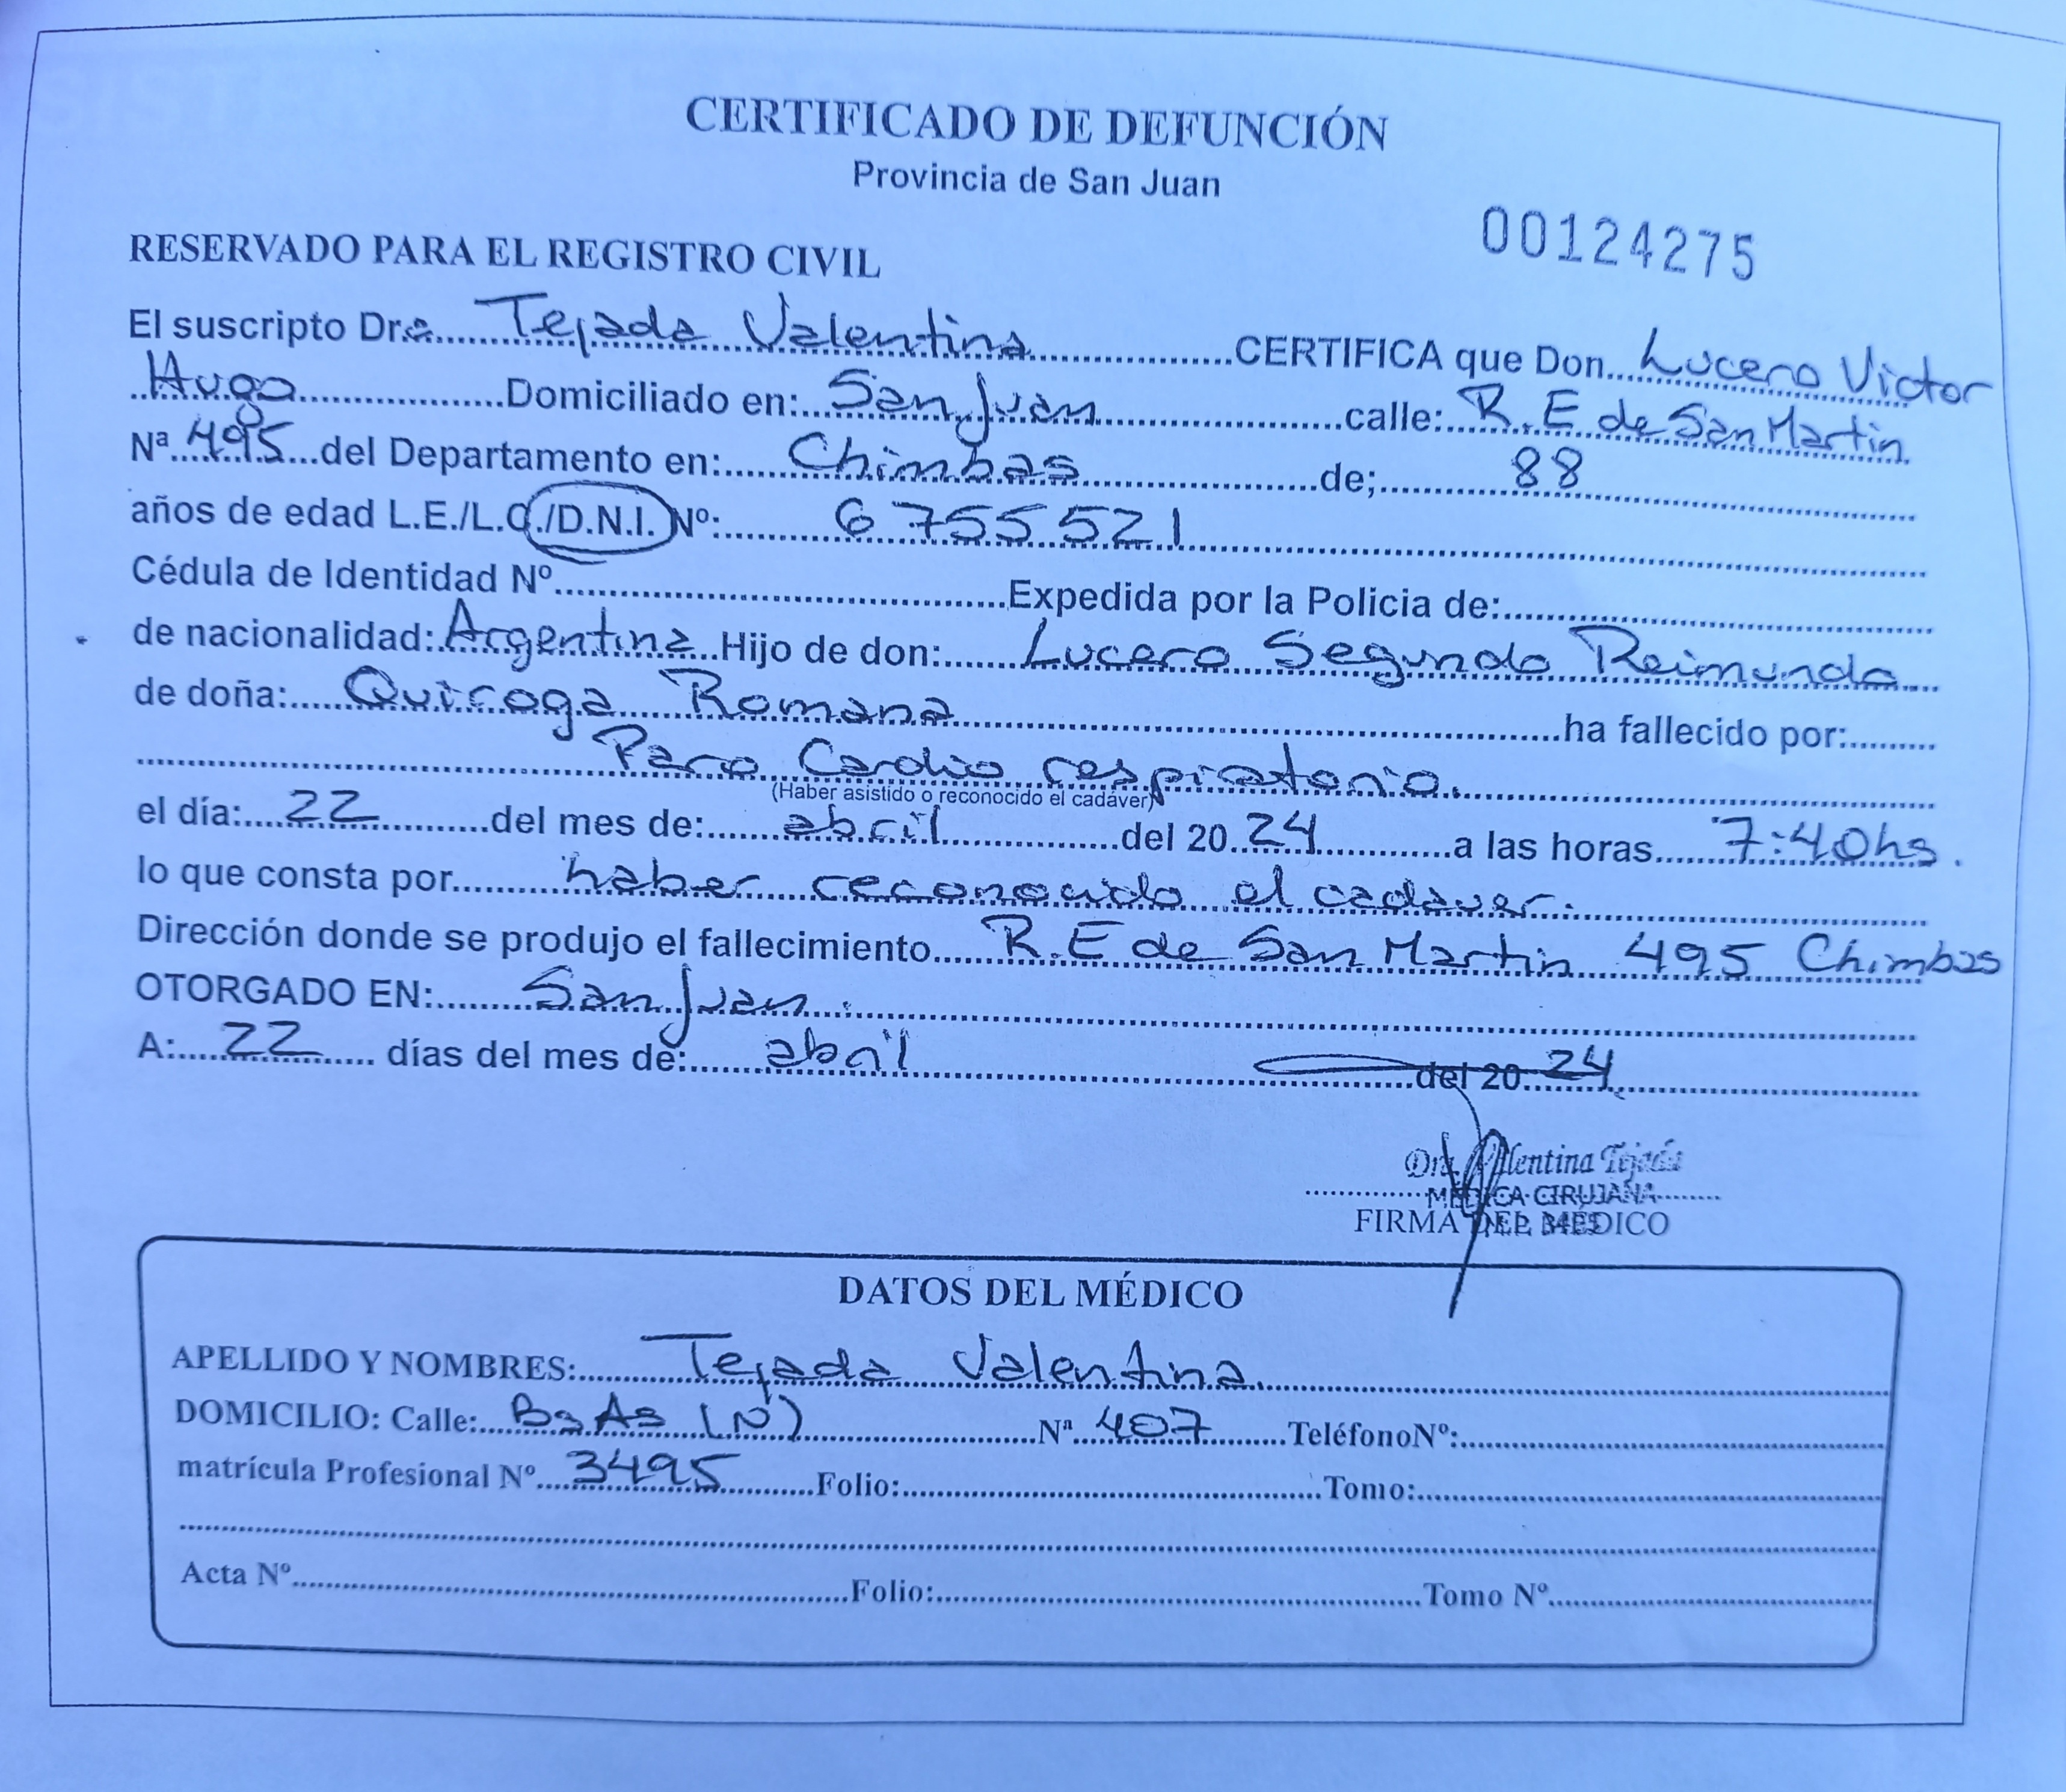 CERTIFICADO DE DEFUNCIÓN
Provincia de San Juan
00124275
RESERVADO PARA EL REGISTRO CIVIL
El suscripto Dra. Tejada Valentina CERTIFICA que Don Lucero Victor
Hugo Domiciliado en: San Juan calle: R. E de San Martin
Nª 495 del Departamento en: Chimbas de; 88
años de edad L.E./L.C./D.N.I. Nº: 6755521
Cédula de Identidad Nº Expedida por la Policia de:
de nacionalidad: Argentina Hijo de don: Lucero Segundo Reimundo
de doña: Quiroga Romana ha fallecido por:
Paro Cardio respiratorio.
(Haber asistido o reconocido el cadáver)
el día: 22 del mes de: abril del 20 24 a las horas 7:40hs.
lo que consta por haber reconocido el cadaver.
Dirección donde se produjo el fallecimiento R.E de San Martin 495 Chimbas
OTORGADO EN: San Juan.
A: 22 días del mes de: abril del 20 24
Dra. Valentina Tejada
MÉDICA CIRUJANA
FIRMA DEL MÉDICO
DATOS DEL MÉDICO
APELLIDO Y NOMBRES: Tejada Valentina.
DOMICILIO: Calle: Bs As (N) Nª 407 TeléfonoNº:
matrícula Profesional Nº 3495 Folio: Tomo:
Acta Nº Folio: Tomo Nº